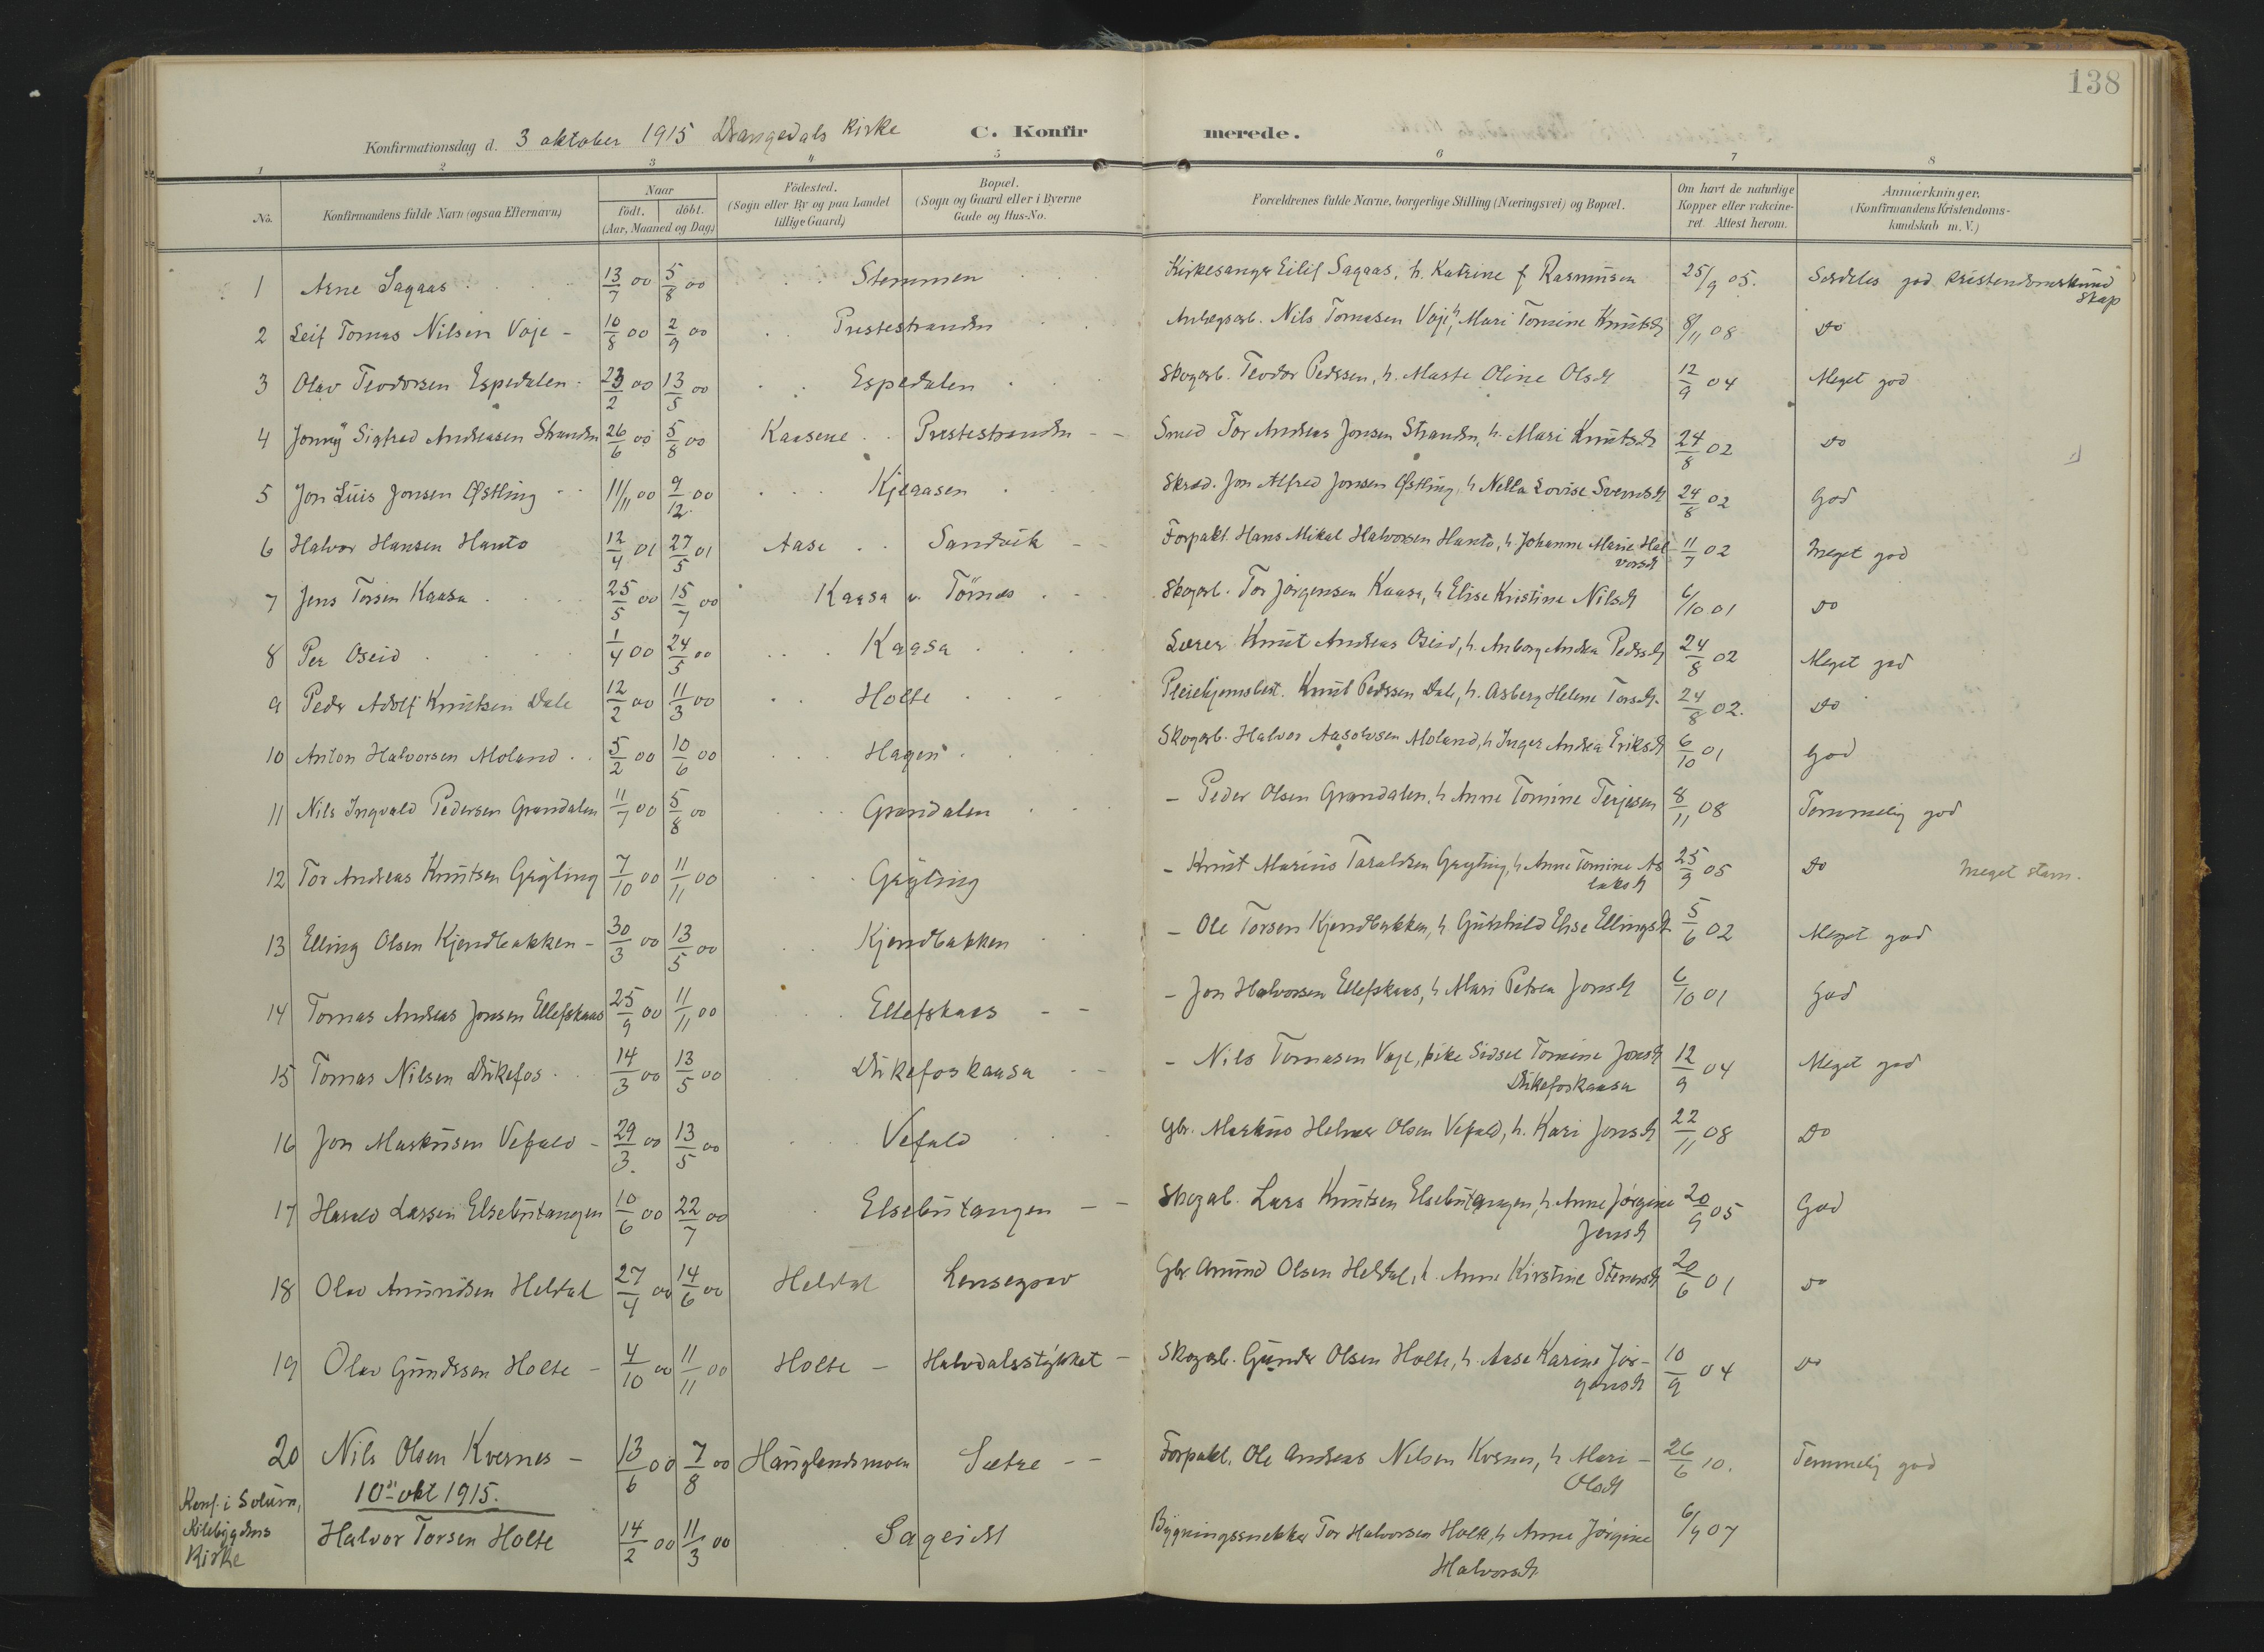 138
Konfirmationsdag d. 3 oktober 1915 Drangedals Kirke C. Konfirmerede.
1 2 3 4 5 6 7 8
No. Konfirmandens fulde Navn (ogsaa Efternavn) Naar födt. döbt. (Aar, Maaned og Dag) Födested. (Sogn eller By og paa Landet tillige Gaard) Bopæl. (Sogn og Gaard eller i Byerne Gade og Hus-No. Forældrenes fulde Navne, borgerlige Stilling (Næringsvei) og Bopæl. Om havt de naturlige Kopper eller vakcineret. Attest herom. Anmærkninger. (Konfirmandens Kristendomskundskab m. V.)
1 Arne Sagaas 13/7 00 5/8 00 Stemmen Kirkesanger Eilif Sagaas, h. Katrine f Rasmusen 25/9 05. Særdeles god kristendomskundskap
2 Leif Tomas Nilsen Voje - 10/8 00 2/9 00 Prestestranden Nils Tomasen Voje, h. Mari Tomine Knutsd 8/11 08 Do
3 Olav Teodorsen Espedalen 23/2 00 13/5 00 Espedalen Skogarb. Teodor Pedersen, h. Marte Oline Olsd 12/9 04 Meget god
4 Jonny Sigfred Andreasen Stranden 26/6 00 5/8 00 Kaasene Prestestranden - - Smed Tor Andreas Jonsen Stranden, h. Mari Knutsd 24/8 02 Do
5 Jon Luis Jonsen Østling 11/11 00 9/12 00 Kjeaasen Skræd. Jon Alfred Jonsen Østling, h Nella Lovise Svensd 24/8 02 God
6 Halvor Hansen Hanto 12/4 01 27/5 01 Aase Sandvik - Forpakt. Hans Mikal Halvorsen Hanto, h. Johanne Marie Halvorsd 11/7 02 Meget god
7 Jens Torsen Kaasa 25/5 00 15/7 00 Kaasa v. Törnes Skogarb. Tor Jörgensen Kaasa, h Elise Kristine Nilsd 6/10 01 Do
8 Per Oseid 1/4 00 24/5 00 Kaasa Lærer Knut Andreas Oseid, h. Anborg Andrea Pedersd 24/8 02 Meget god
9 Peder Adolf Knutsen Dale 12/2 00 11/3 00 Holte Pleiehjemsbest. Knut Pedersen Dale, h. Asberg Helene Torsd. 24/8 02. Do
10 Anton Halvorsen Moland 5/2 00 10/6 00 Hagen Skogarb. Halvor Aasolvsen Moland, h Inger Andrea Eriksd 6/10 01 God
11 Nils Ingvald Pedersen Grandalen 11/7 00 5/8 00 Grandalen - Peder Olsen Grandalen, h Anne Tomine Terjesen 8/11 08 Temmelig god
12 Tor Andreas Knutsen Gryting 7/10 00 11/11 00 Gryting - Knut Marius Taraldsen Gryting, h Anne Tomine Aslaksd 25/9 05 Do Meget stam.
13 Elling Olsen Kjendbakken - 30/3 00 13/5 00 Kjendbakken - Ole Torsen Kjendbakken, h Gunhild Else Ellingsd 5/6 02 Meget god
14 Tomas Andreas Jonsen Ellefskaas 25/9 00 11/11 00 Ellefskaas - - - Jon Halvorsen Ellefskaas, h Mari Petrea Jonsd 6/10 01 God
15 Tomas Nilsen Dukefos 14/3 00 13/5 00 Dukefoskaasa - Nils Tomasen Voje, pike Sidsel Tomine Jonsd Dukefoskaasa 12/9 04 Meget god
16 Jon Markusen Vefald - 29/3 00 13/5 00 Vefald Gbr. Markus Helmer Olsen Vefald, h. Kari Jonsd 22/11 08 Do
17 Harald Larsen Elsebutangen 10/6 00 22/7 00 Elsebutangen - - Skogarb. Lars Knutsen Elsebutangen, h. Anne Jörgine Jensd 20/9 05 God
18 Olav Amundsen Heldal 27/4 00 14/6 00 Heldal Lensegrav Gbr Amund Olsen Heldal, h. Anne Kirstine Stenersd 20/6 01 Do
19 Olav Gundersen Holte - 4/10 00 11/11 00 Holte - Halvdalsstykket - Skogarb. Gunder Olsen Holte, h. Aase Karine Jörgensd 10/9 04 Do
20 Nils Olsen Kvernes - 13/6 00 7/8 00 Hauglandsmoen Sætre - - Forpakt. Ole Andreas Nilsen Kvernes, h Mari - Olsd 26/6 10. Temmelig god
10de okt 1915.
Konf. i Solum, Kilebygdens Kirke Halvor Torsen Holte 14/2 00 11/3 00 Sageidet Bygningssnekker Tor Halvorsen Holte, h Anne Jörgine Halvorsd 6/9 07